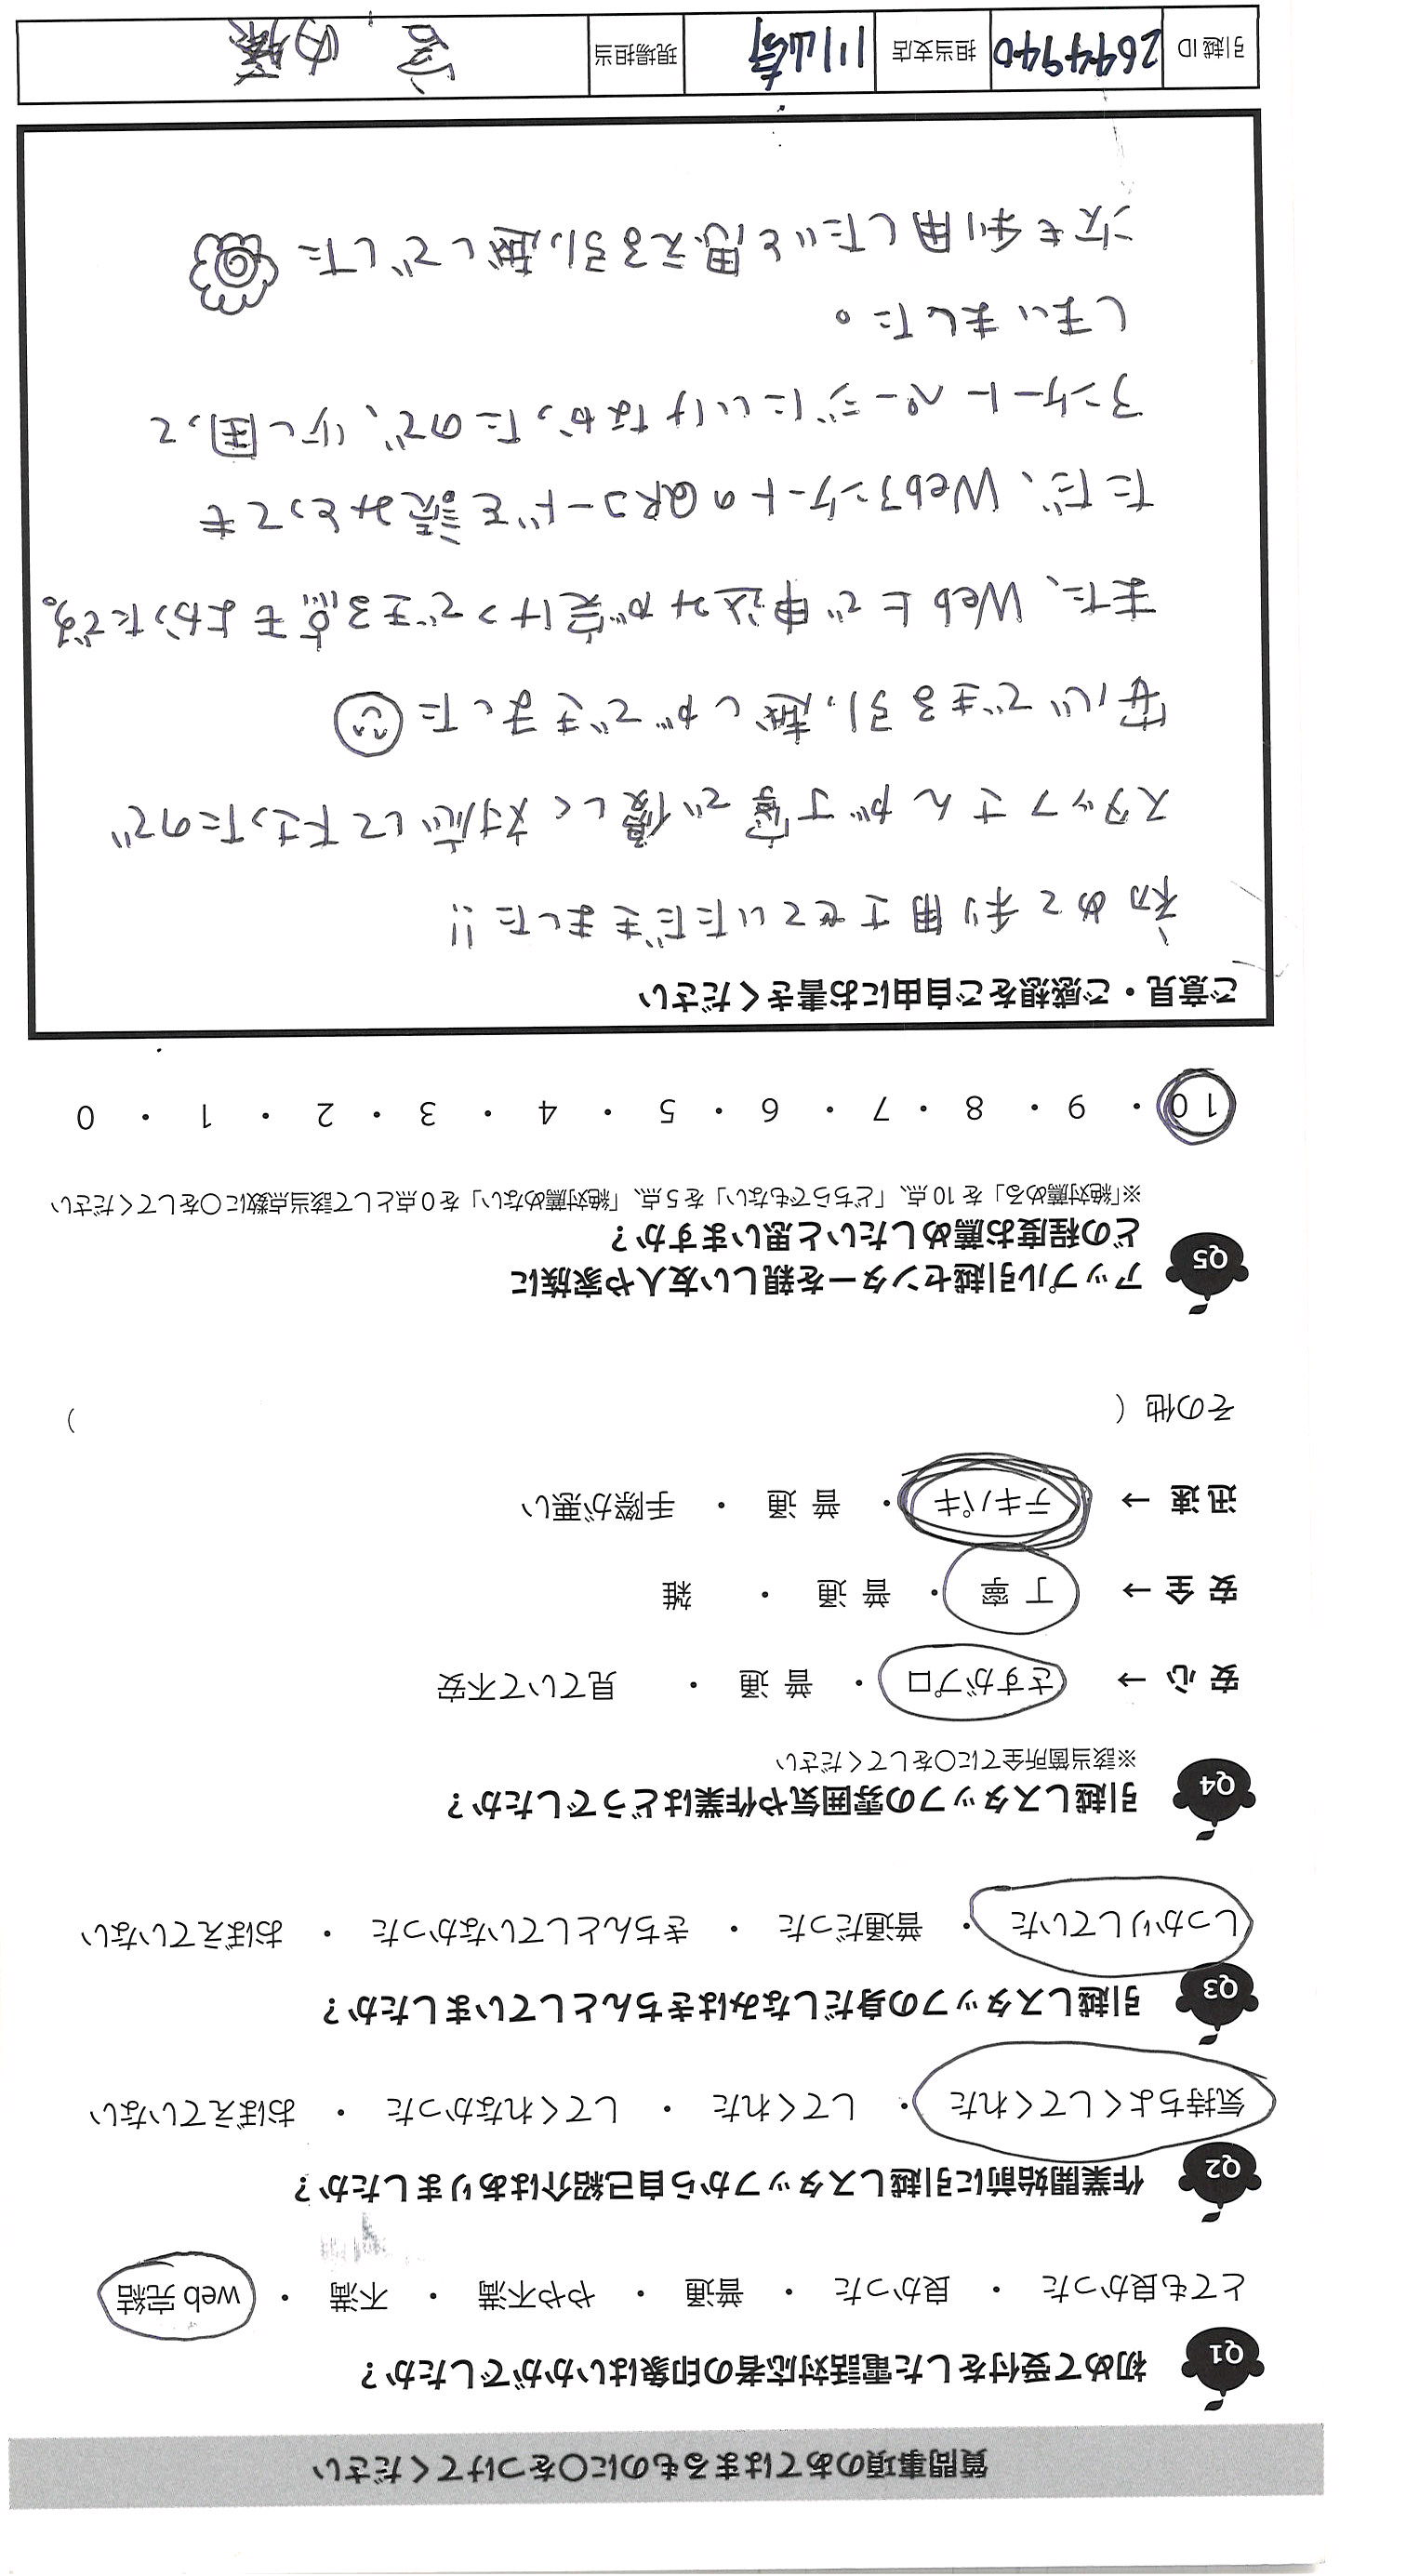 質問事項のあてはまるものに○をつけてください
Q1 初めて受付をした電話対応者の印象はいかがでしたか？
とても良かった ・ 良かった ・ 普通 ・ やや不満 ・ 不満 ・ web 完結
Q2 作業開始前に引越しスタッフから自己紹介はありましたか？
気持ちよくしてくれた ・ してくれた ・ してくれなかった ・ おぼえていない
Q3 引越しスタッフの身だしなみはきちんとしていましたか？
しっかりしていた ・ 普通だった ・ きちんとしていなかった ・ おぼえていない
Q4 引越しスタッフの雰囲気や作業はどうでしたか？
※該当箇所全てに○をしてください
安 心 → さすがプロ ・ 普 通 ・ 見ていて不安
安 全 → 丁 寧 ・ 普 通 ・ 雑
迅 速 → テキパキ ・ 普 通 ・ 手際が悪い
その他（ ）
Q5 アップル引越センターを親しい友人や家族に
どの程度お薦めしたいと思いますか？
※「絶対薦める」を 10 点、「どちらでもない」を 5 点、「絶対薦めない」を 0 点として該当点数に○をしてください
10 ・ 9 ・ 8 ・ 7 ・ 6 ・ 5 ・ 4 ・ 3 ・ 2 ・ 1 ・ 0
ご意見・ご感想をご自由にお書きください
初めて利用させていただきました!!
スタッフさんが丁寧で優しく対応して下さったので
安心できる引っ越しができました
また、Web上で申込みが完けつできる点もよかったです。
ただ、WebアンケートのQRコードを読みとっても
アンケートページにいけなかったので、少し困って
しまいました。
次も利用したいと思える引っ越しでした
引越 ID 2694940 担当支店 川崎 現場担当 宮 内藤